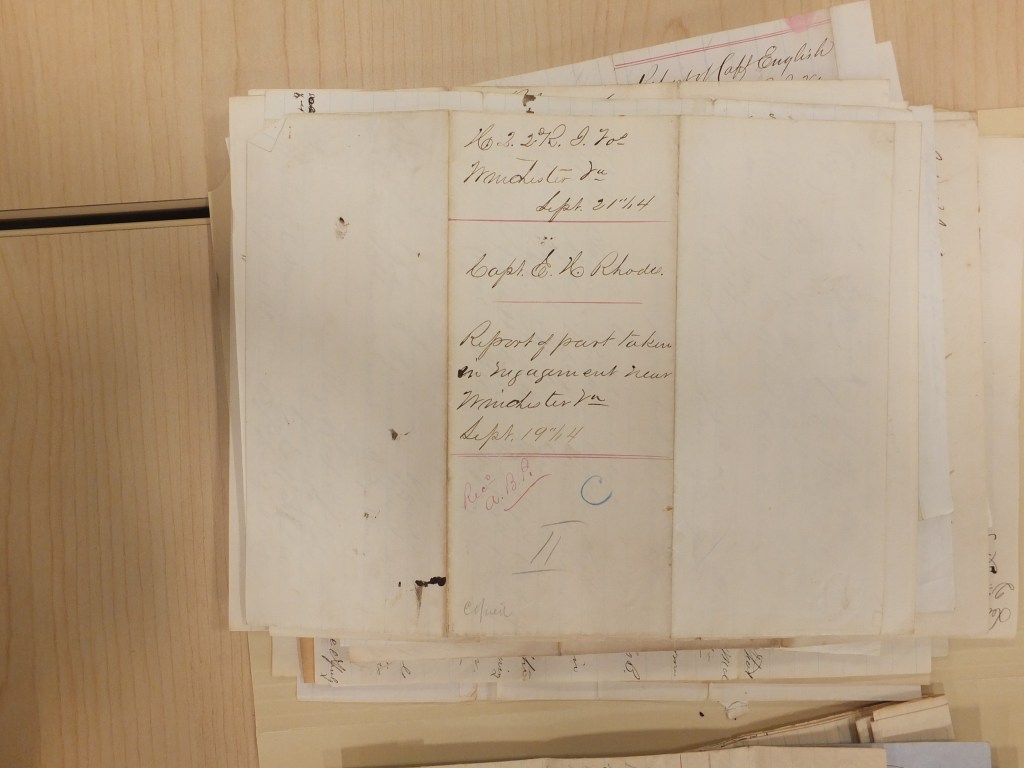 Report of Capt English
H. Q. 2d R. I. Vols
Winchester Va
Sept. 21st/64
Capt. E. H. Rhodes.
Report of part taken
in engagement near
Winchester Va
Sept. 19th/64
A. B. P.
C
II
copied